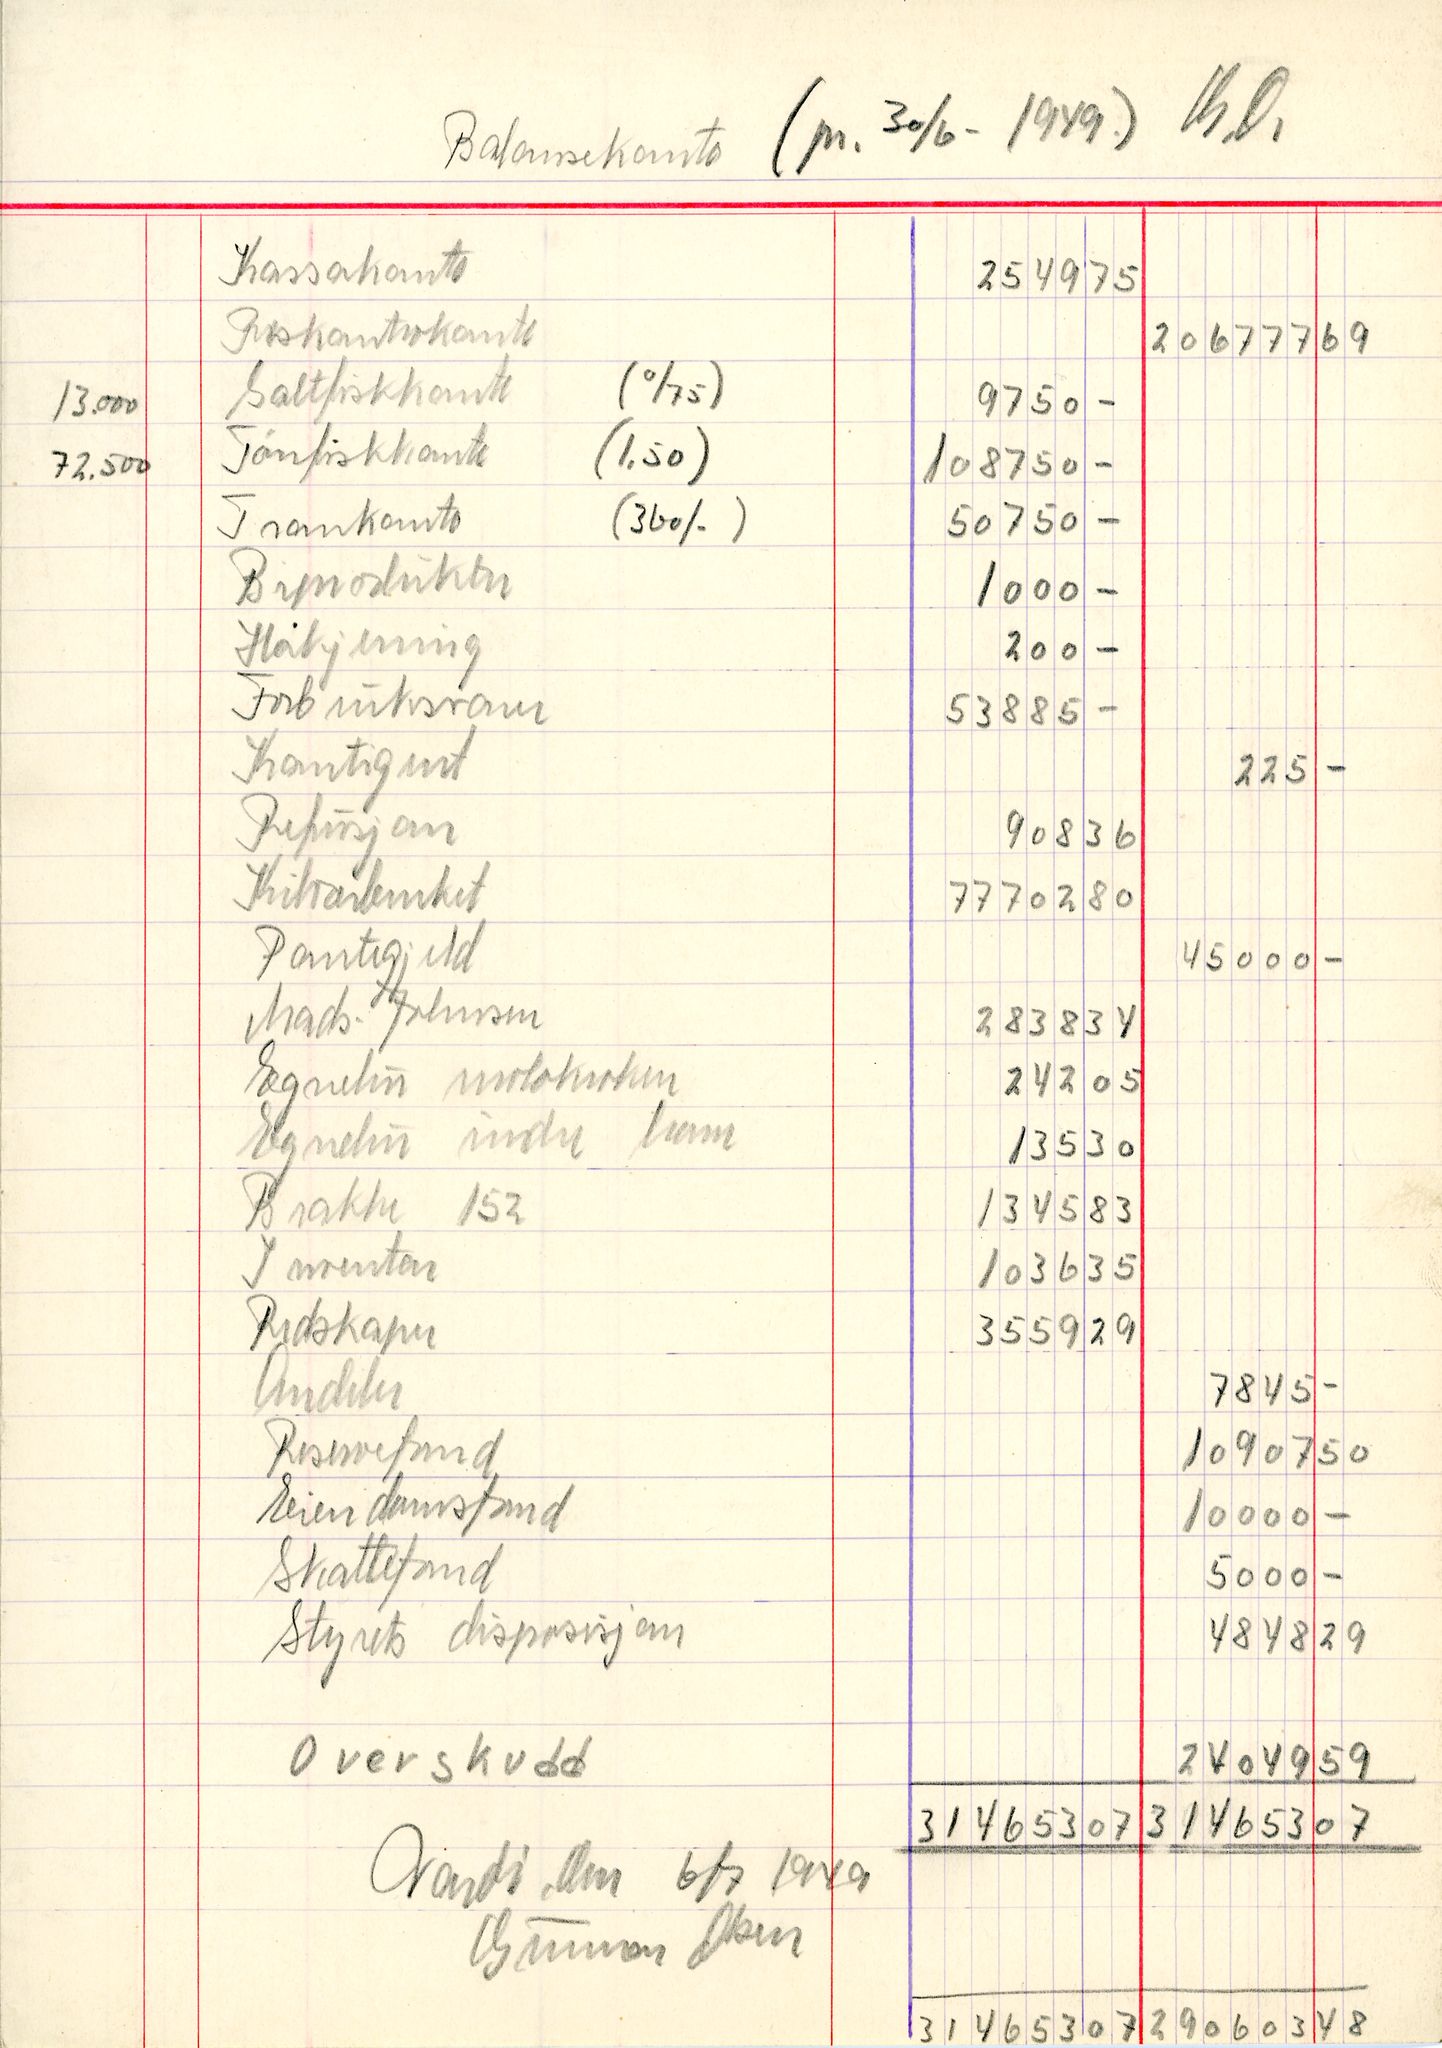 Balansekonto (pr. 30/6 - 1949.) G.O.
Kassakonto 2549 75
Driskontrokonto 206777 69
13.000 Saltfiskkonto (0/75) 9750 -
72.500 Tørrfiskkonto (1.50) 108750 -
Trankonto (360/-) 50750 -
Biprodukter 1000 -
Håkjerring 200 -
Forbruksvarer 53885 -
Kontigent 225 -
Refusjon 908 36
77702 80
Pantegjeld 45000 -
Mads. Johnsen 2838 34
Egnebu molokroken 242 05
Egnebu indre havn 135 30
Brakke 152 1345 83
Inventar 1036 35
Redskaper 3559 29
Andeler 7845 -
Reservefond 10907 50
Eiendomsfond 10000 -
Skattefond 5000 -
Styrets disposisjon 4848 29
Overskudd 24049 59
314653 07 314653 07
Vardø den 6/7 1949
Gunnar Olsen
314653 07 290603 48